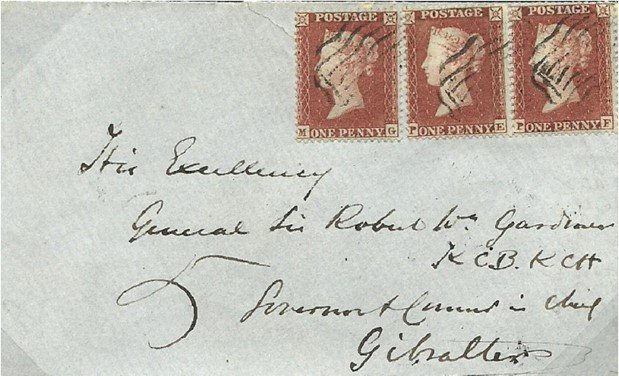 POSTAGE POSTAGE POSTAGE
M G P E P F
ONE PENNY ONE PENNY ONE PENNY
His Excellency
General Sir Robert Wm Gardiner
KCB. KCH
5 Governor & Comm in chief
Gibraltar